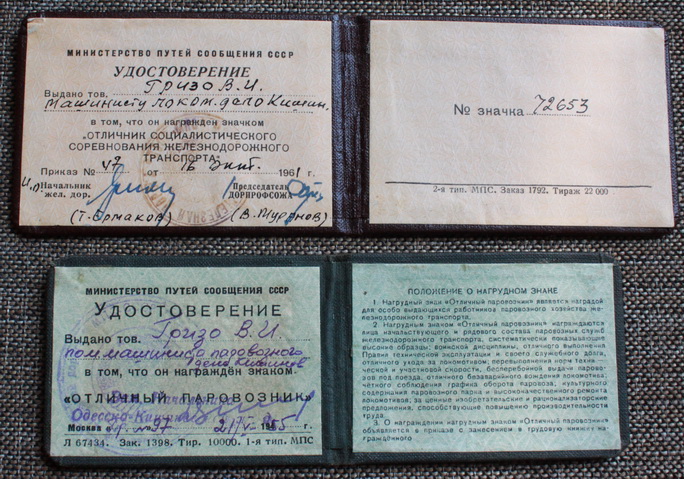 МИНИСТЕРСТВО ПУТЕЙ СООБЩЕНИЯ СССР
УДОСТОВЕРЕНИЕ
Выдано тов. Гризо В.И.
машинисту локом. депо Кишин.
в том, что он награжден значком
"ОТЛИЧНИК СОЦИАЛИСТИЧЕСКОГО
СОРЕВНОВАНИЯ ЖЕЛЕЗНОДОРОЖНОГО
ТРАНСПОРТА"
Приказ № 47 от 16 1961 г.
И.О Начальник
жел. дор.
Председатель
ДОРПРОФСОЖА
(Т. Ермаков) (В. Муронов)
№ значка 72653
2-я тип. МПС. Заказ 1792. Тираж 22 000
МИНИСТЕРСТВО ПУТЕЙ СООБЩЕНИЯ СССР
УДОСТОВЕРЕНИЕ
Выдано тов. Гризо В.И.
пом. машиниста паровозного
депо Кишинев
в том, что он награждён знаком
«ОТЛИЧНЫЙ ПАРОВОЗНИК»
Одесско-Кишин
Москва
Л 67434. Зак. 1398. Тир. 10000. 1-я тип. МПС
ПОЛОЖЕНИЕ О НАГРУДНОМ ЗНАКЕ
1. Нагрудный знак «Отличный паровозник» является наградой
для особо выдающихся работников паровозного хозяйства же-
лезнодорожного транспорта.
2. Нагрудным знаком «Отличный паровозник» награждаются
лица начальствующего и рядового состава паровозных служб
железнодорожного транспорта, систематически показывающие
высокие образцы: воинской дисциплины, отличного выполнения
Правил технической эксплуатации и своего служебного долга,
отличного ухода за паровозом, перевыполнения норм техни-
ческой и участковой скорости, бесперебойной выдачи парово-
зов под поезда, отличного безаварийного вождения локомотива;
чёткого соблюдения графика оборота паровоза, культурного
содержания паровозного парка и высококачественного ремонта
локомотивов; за ценные изобретательские и рационализаторские
предложения, способствующие повышению производительности
труда.
3. О награждении нагрудным знаком «Отличный паровозник»
объявляется в приказе с занесением в трудовую книжку на-
граждённого